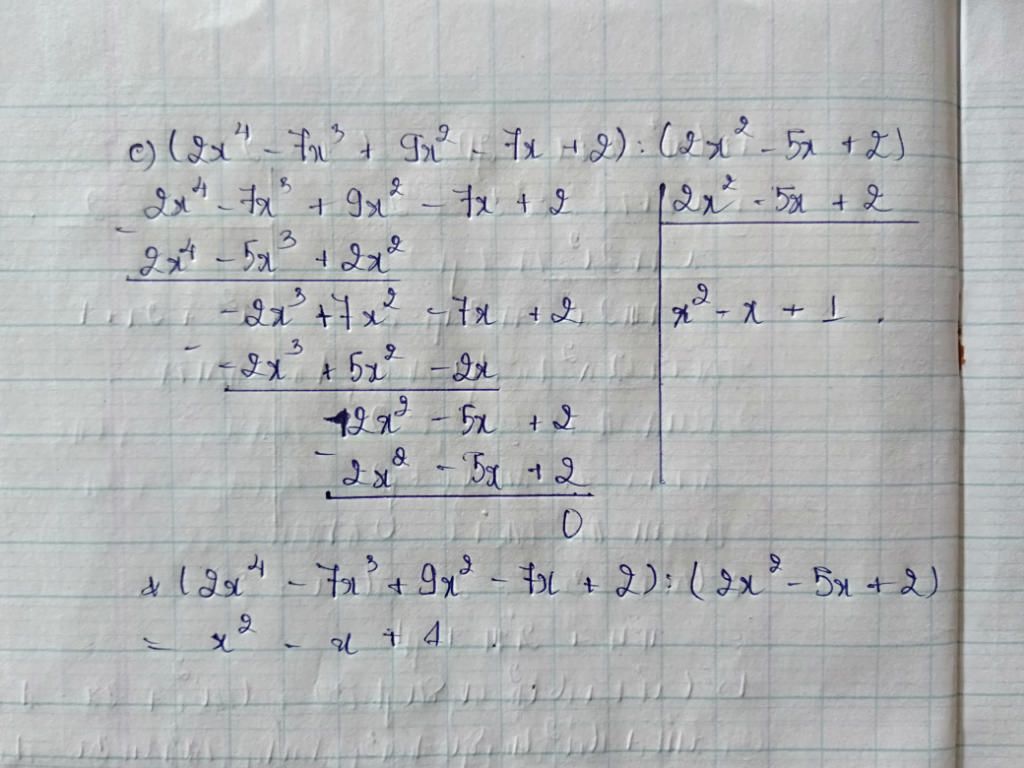 c) (2x⁴ - 7x³ + 9x² - 7x + 2) : (2x² - 5x + 2)
2x⁴ - 7x³ + 9x² - 7x + 2 | 2x² - 5x + 2
- 2x⁴ - 5x³ + 2x²
-2x³ + 7x² - 7x + 2 | x² - x + 1 .
- -2x³ + 5x² - 2x
2x² - 5x + 2
- 2x² - 5x + 2
0
* (2x⁴ - 7x³ + 9x² - 7x + 2) : (2x² - 5x + 2)
= x² - x + 1 .